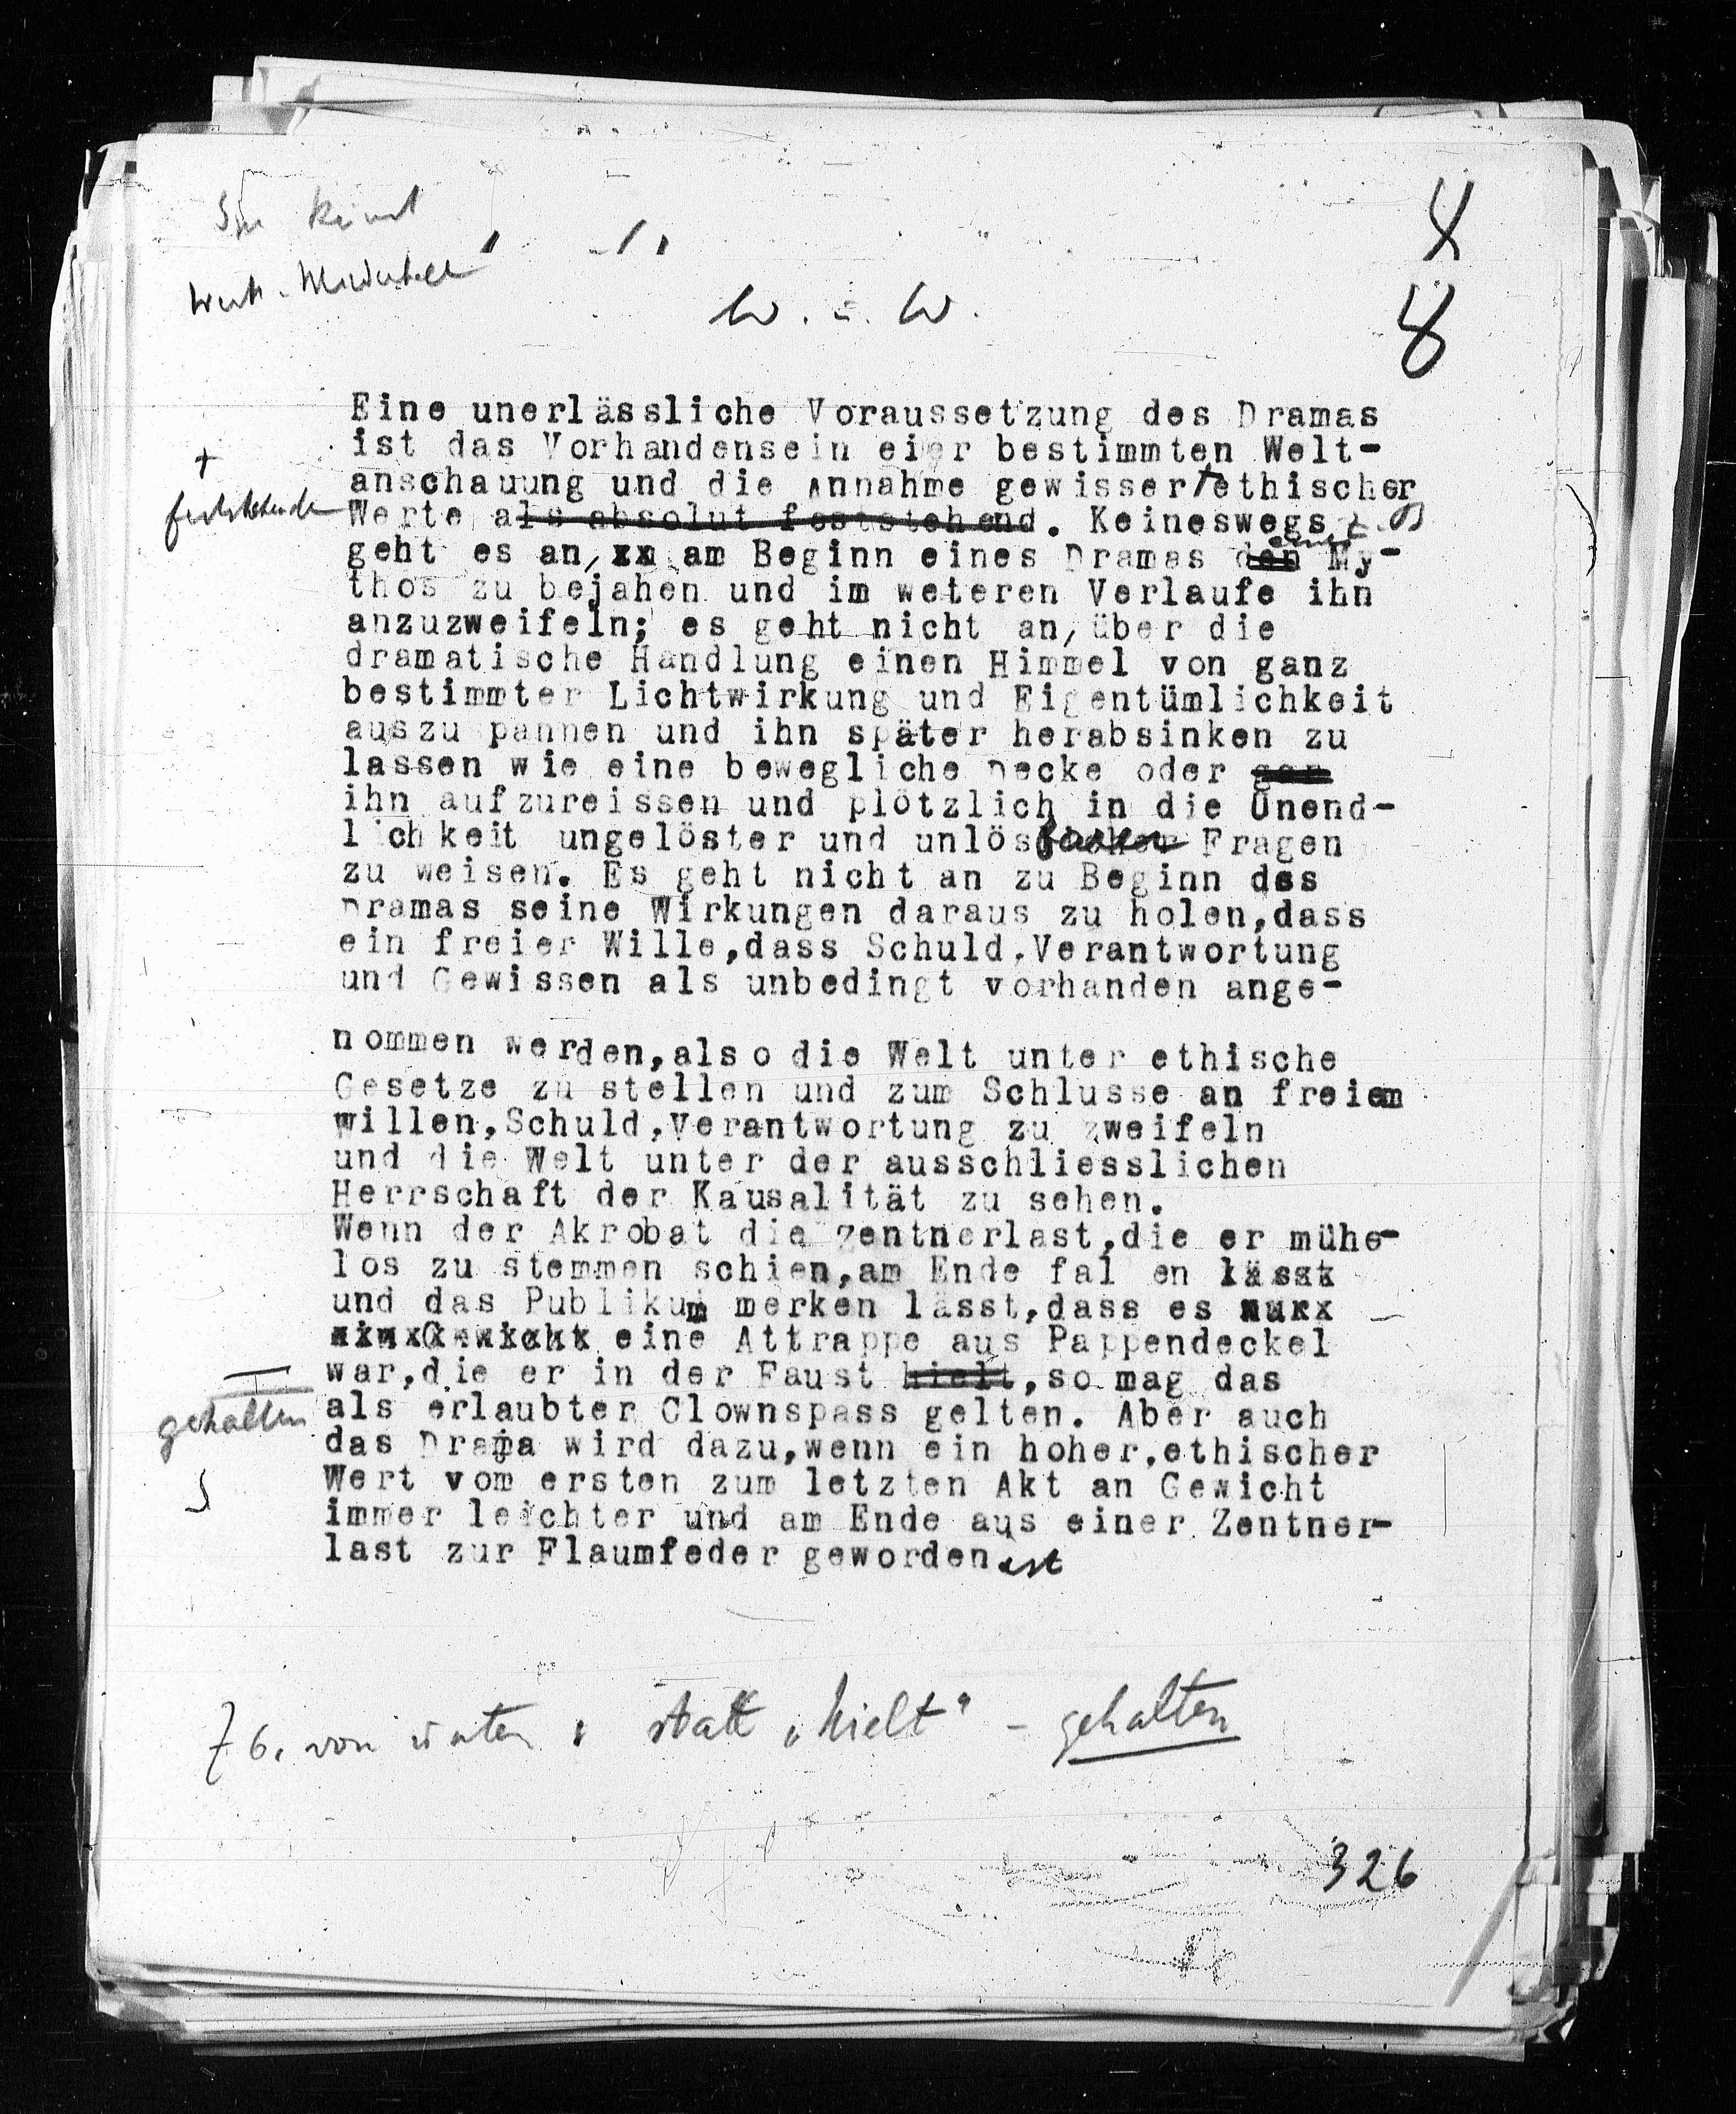 4
W. u. W.
8
Eine unerlässliche Voraussetzung des Dramas
ist das Vorhandensein eier bestimmten Welt-
+
anschauung und die Annahme gewisser ethischer
feststehende
Werte als absolut feststehend. Keineswegs
geht es an, xx am Beginn eines Dramas den einen My-
thos zu bejahen und im weteren Verlaufe ihn
anzuzweifeln; es geht nicht an, über die
dramatische Handlung einen Himmel von ganz
bestimmter Lichtwirkung und Eigentümlichkeit
auszu pannen und ihn später herabsinken zu
lassen wie eine bewegliche Decke oder gar
ihn aufzureissen und plötzlich in die Unend-
lichkeit ungelöster und unlösbarer Fragen
zu weisen. Es geht nicht an zu Beginn des
Dramas seine Wirkungen daraus zu holen,dass
ein freier Wille,dass Schuld,Verantwortung
und Gewissen als unbedingt vorhanden ange-
nommen werden,also die Welt unter ethische
Gesetze zu stellen und zum Schlusse an freiem
Willen,Schuld,Verantwortung zu zweifeln
und die Welt unter der ausschliesslichen
Herrschaft der Kausalität zu sehen.
Wenn der Akrobat die Zentnerlast,die er mühe-
los zu stemmen schien,am Ende fal en lässt
und das Publikum merken lässt,dass es nurx
einxGewicht eine Attrappe aus Pappendeckel
war,die er in der Faust hielt,so mag das
gehalten
als erlaubter Clownspass gelten. Aber auch
das Drama wird dazu,wenn ein hoher,ethischer
Wert vom ersten zum letzten Akt an Gewicht
immer leichter und am Ende aus einer Zentner-
last zur Flaumfeder geworden ist
Z 6. von unten : statt „hielt" - gehalten
326